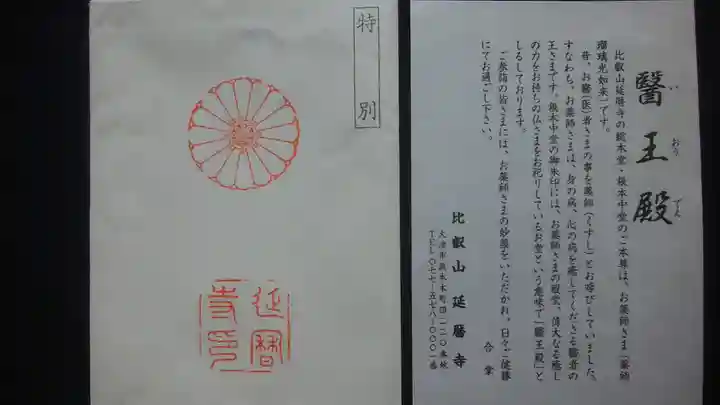 特別
延暦
寺印
醫王殿
い おう でん
比叡山延暦寺の総本堂・根本中堂のご本尊は、お薬師さま「薬師
瑠璃光如来」です。
昔、お醫(医)者さまの事を薬師(くすし)とお呼びしていました。
すなわち、お薬師さまは、身の病、心の病を癒してくださる醫者の
王さまです。根本中堂の御朱印には、お薬師さまの殿堂、偉大なる癒し
の力をお持ちの仏さまをお祀りしているお堂という意味で「醫王殿」と
しるしております。
ご参詣の皆さまには、お薬師さまの妙薬をいただかれ、日々ご健勝
にてお過ごし下さい。
合掌
比叡山延暦寺
大津市坂本本町四二二〇番地
TEL〇七七-五七八-〇〇〇一番